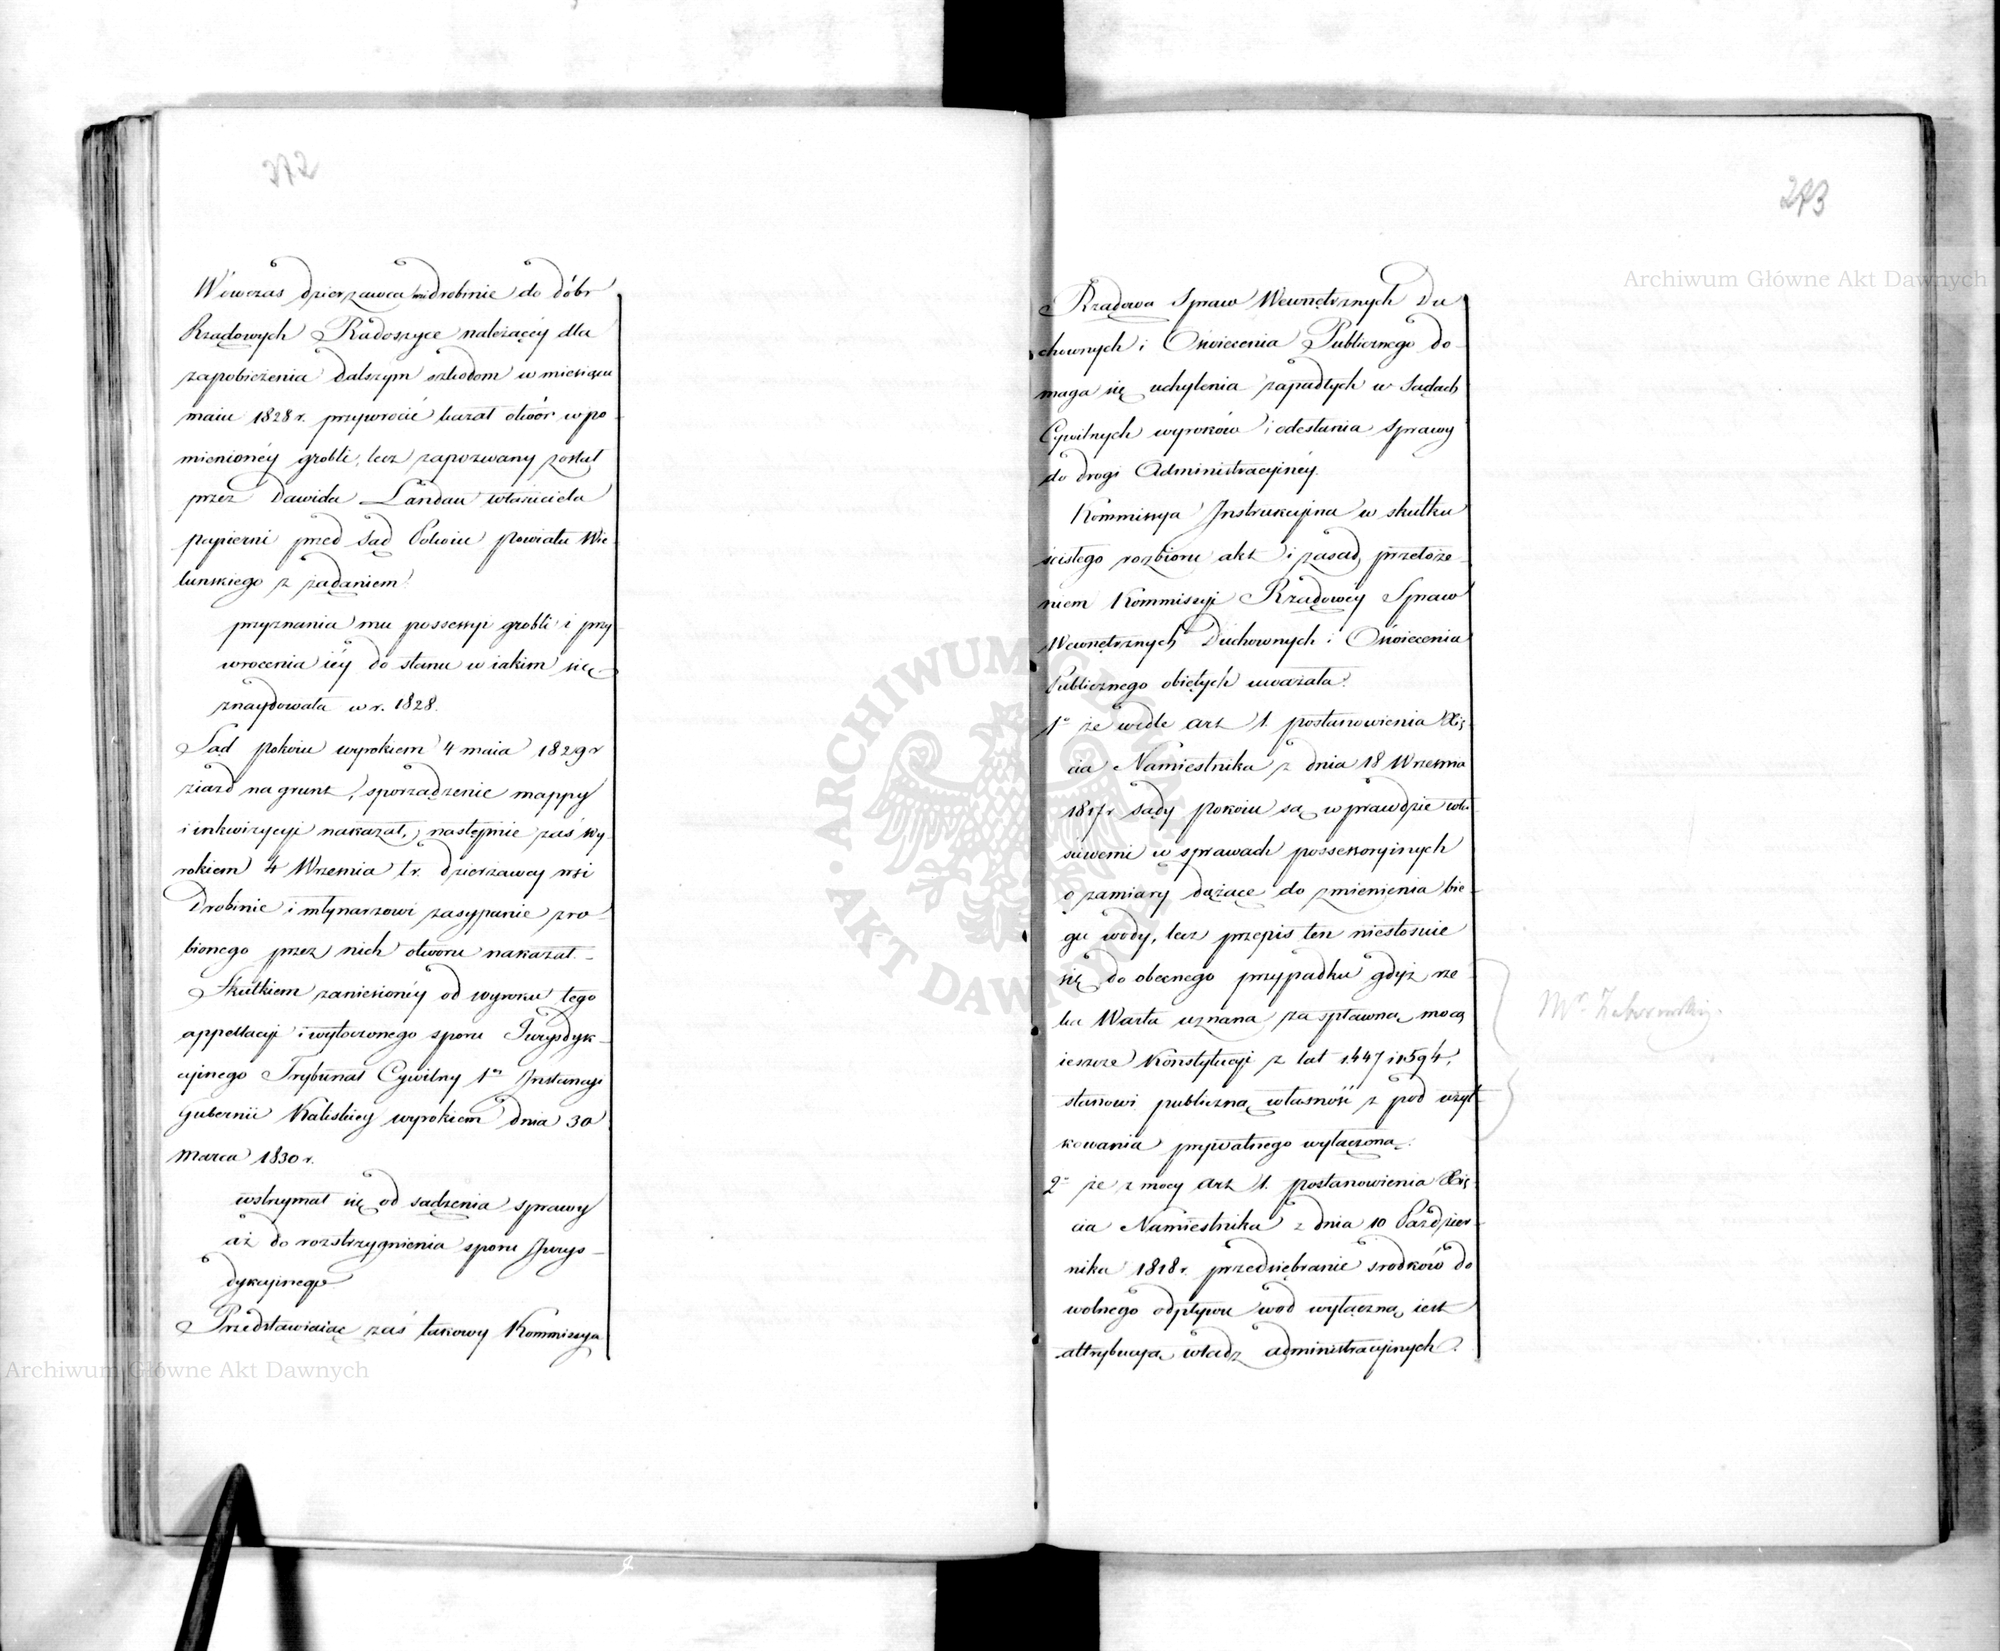 272
Wówczas dzierzawca wsi drobinie do dóbr
Rządowych Radoszyce należącéy dla
zapobieżenia dalszym szkodom w miesiącu
maiu 1828 r. przywrócić kazał otwór w po-
mienionéy grobli, lecz zapozwany został
przez Dawida Landau właściciela
papierni przed Sąd Pokoiu powiatu Wie-
lunskiego z żądaniem:
przyznania mu possessyi grobli i przy
wrócenia iéy do stanu w iakim się
znaydowała w r. 1828.
Sąd pokoiu wyrokiem 4 maia 1829 r
ziazd na grunt, sporządzenie mappy
i inkwizycyi nakazał, następnie zaś wy
rokiem 4 Września t. r. dzierżawcy wsi
Drobinie i młynarzowi zasypanie zro-
bionego przez nich otworu nakazał.-
Skutkiem zaniesionéy od wyroku tego
appellacyi i wytoczonego sporu Jurysdyk-
cyinego Trybunał Cywilny 1éj Instancyi
Gubernii Kaliskiey wyrokiem dnia 30
Marca 1830 r.
wstrzymał się od sądzenia sprawy
aż do rozstrzygnienia sporu Jurys-
dykcyinego.
Przedstawiaiąc zaś takowy Kommissya
273
Rządowa Spraw Wewnętrznych Du
chownych i Oświecenia Publicznego do-
maga się uchylenia zapadłych w Sądach
Cywilnych wyroków i odesłania sprawy
do drogi Administracyinéy.
Kommissya Instrukcyina w skutku
ścisłego rozbioru akt i zasad, przełoże-
niem Kommissyi Rządowéy Spraw
Wewnętrznych Duchownych i Oświecenia
Publicznego obiętych uważała:
1o że wedle art 1. postanowienia Xię-
cia Namiestnika z dnia 18 Września
1817 r sądy pokoiu są wprawdzie wła
sciwemi w sprawach possessoryinych
o zamiary dążące do zmienienia bie-
gu wody, lecz przepis ten niestosuie
się do obecnego przypadku gdyż rze-
ka Warta uznana za spławną mocą
ieszcze Konstytucyi z lat 1447 i 1594,
stanowi publiczną własność z pod użyt
kowania prywatnego wyłączoną.
Mr. Zaborowski.
2o że z mocy art 1. postanowienia Xię-
cia Namiestnika z dnia 10 Paździer-
nika 1818 r. przedsiębranie środków do
wolnego odpływu wod wyłączną iest
attrybucyą władz administracyinych.
Archiwum Główne Akt Dawnych
Archiwum Główne Akt Dawnych
ARCHIWUM GŁÓWNE · AKT DAWNYCH ·